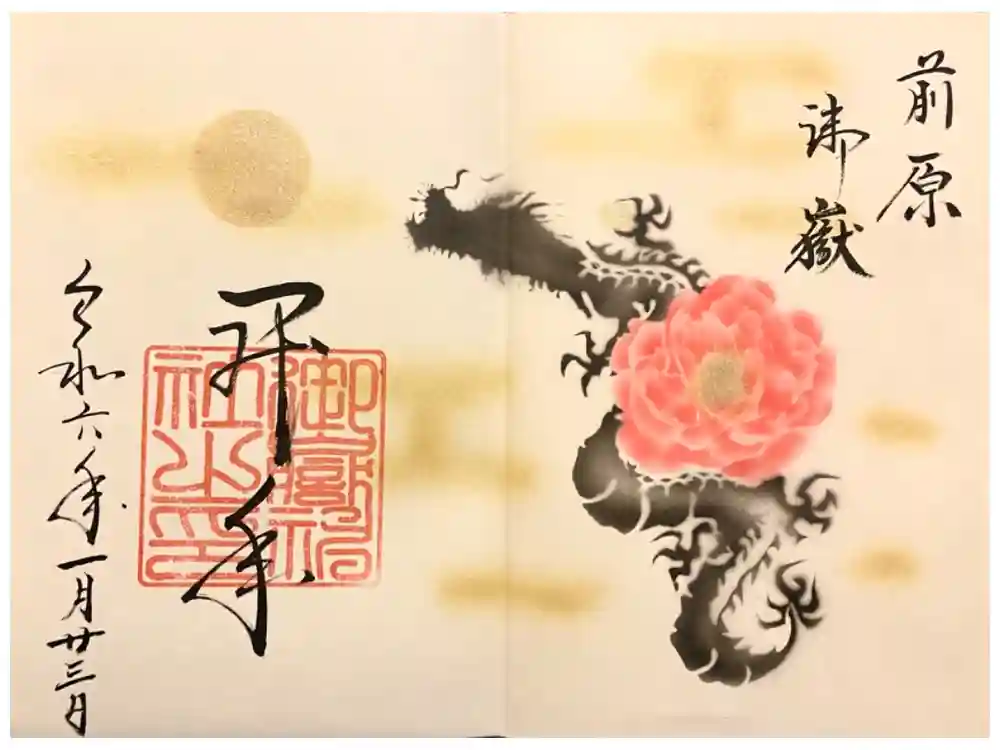 前原
御嶽
辰年
御嶽神
社之印
令和六年一月廿三日